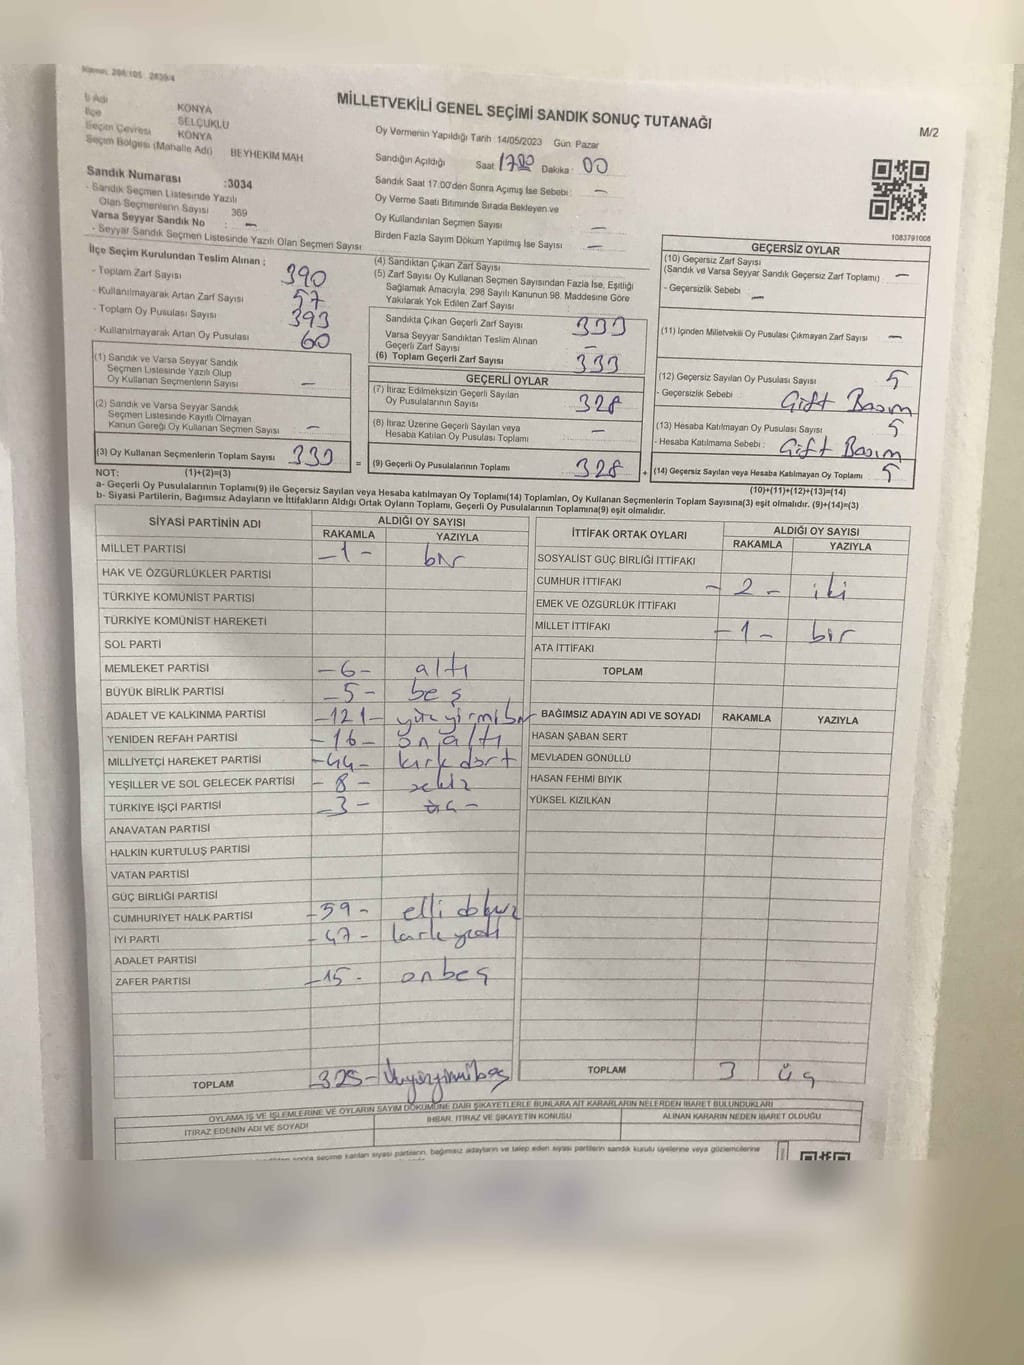 MİLLETVEKİLİ GENEL SEÇİMİ SANDIK SONUÇ TUTANAĞI
M/2
İl Adı KONYA
İlçe SELÇUKLU
Seçim Çevresi KONYA
Seçim Bölgesi (Mahalle Adı) BEYHEKIM MAH
Sandık Numarası :3034
- Sandık Seçmen Listesinde Yazılı
Olan Seçmenlerin Sayısı 369
Varsa Seyyar Sandık No : —
- Seyyar Sandık Seçmen Listesinde Yazılı Olan Seçmen Sayısı
Oy Vermenin Yapıldığı Tarih :14/05/2023 Gün: Pazar
Sandığın Açıldığı Saat 1700 Dakika : 00
Sandık Saat 17.00'den Sonra Açımış İse Sebebi : —
Oy Verme Saati Bitiminde Sırada Bekleyen ve
Oy Kullandırılan Seçmen Sayısı —
Birden Fazla Sayım Döküm Yapılmış İse Sayısı —
1083791008
İlçe Seçim Kurulundan Teslim Alınan ;
- Toplam Zarf Sayısı 390
- Kullanılmayarak Artan Zarf Sayısı 57
- Toplam Oy Pusulası Sayısı 393
- Kullanılmayarak Artan Oy Pusulası 60
(1) Sandık ve Varsa Seyyar Sandık
Seçmen Listesinde Yazılı Olup
Oy Kullanan Seçmenlerin Sayısı —
(2) Sandık ve Varsa Seyyar Sandık
Seçmen Listesinde Kayıtlı Olmayan
Kanun Gereği Oy Kullanan Seçmen Sayısı —
(3) Oy Kullanan Seçmenlerin Toplam Sayısı 333
NOT: (1)+(2)=(3)
(4) Sandıktan Çıkan Zarf Sayısı
(5) Zarf Sayısı Oy Kullanan Seçmen Sayısından Fazla İse, Eşitliği
Sağlamak Amacıyla, 298 Sayılı Kanunun 98. Maddesine Göre
Yakılarak Yok Edilen Zarf Sayısı
Sandıkta Çıkan Geçerli Zarf Sayısı 333
Varsa Seyyar Sandıktan Teslim Alınan
Geçerli Zarf Sayısı —
(6) Toplam Geçerli Zarf Sayısı 333
GEÇERLİ OYLAR
(7) İtiraz Edilmeksizin Geçerli Sayılan
Oy Pusulalarının Sayısı 328
(8) İtiraz Üzerine Geçerli Sayılan veya
Hesaba Katılan Oy Pusulası Toplamı —
= (9) Geçerli Oy Pusulalarının Toplamı 328
GEÇERSİZ OYLAR
(10) Geçersiz Zarf Sayısı
(Sandık ve Varsa Seyyar Sandık Geçersiz Zarf Toplamı) —
- Geçersizlik Sebebi : —
(11) İçinden Milletvekili Oy Pusulası Çıkmayan Zarf Sayısı —
(12) Geçersiz Sayılan Oy Pusulası Sayısı 5
- Geçersizlik Sebebi Gift Basım
(13) Hesaba Katılmayan Oy Pusulası Sayısı 5
- Hesaba Katılmama Sebebi : Gift Basım
+ (14) Geçersiz Sayılan veya Hesaba Katılmayan Oy Toplamı 5
(10)+(11)+(12)+(13)=(14)
a- Geçerli Oy Pusulalarının Toplamı(9) ile Geçersiz Sayılan veya Hesaba katılmayan Oy Toplamı(14) Toplamları, Oy Kullanan Seçmenlerin Toplam Sayısına(3) eşit olmalıdır. (9)+(14)=(3)
b- Siyasi Partilerin, Bağımsız Adayların ve İttifakların Aldığı Ortak Oyların Toplamı, Geçerli Oy Pusulalarının Toplamına(9) eşit olmalıdır.
SİYASİ PARTİNİN ADI ALDIĞI OY SAYISI
RAKAMLA YAZIYLA
MİLLET PARTİSİ -1- bir
HAK VE ÖZGÜRLÜKLER PARTİSİ
TÜRKİYE KOMÜNİST PARTİSİ
TÜRKİYE KOMÜNİST HAREKETİ
SOL PARTİ
MEMLEKET PARTİSİ -6- altı
BÜYÜK BİRLİK PARTİSİ -5- beş
ADALET VE KALKINMA PARTİSİ -121- yüzyirmibir
YENİDEN REFAH PARTİSİ -16- onaltı
MİLLİYETÇİ HAREKET PARTİSİ -44- kırkdört
YEŞİLLER VE SOL GELECEK PARTİSİ -8- sekiz
TÜRKİYE İŞÇİ PARTİSİ -3- üç-
ANAVATAN PARTİSİ
HALKIN KURTULUŞ PARTİSİ
VATAN PARTİSİ
GÜÇ BİRLİĞİ PARTİSİ
CUMHURİYET HALK PARTİSİ -59- elli dokuz
İYİ PARTİ -47- kırkyedi
ADALET PARTİSİ
ZAFER PARTİSİ -15- onbeş
TOPLAM 325- üçyüzyirmibeş
İTTİFAK ORTAK OYLARI ALDIĞI OY SAYISI
RAKAMLA YAZIYLA
SOSYALİST GÜÇ BİRLİĞİ İTTİFAKI
CUMHUR İTTİFAKI -2- iki
EMEK VE ÖZGÜRLÜK İTTİFAKI
MİLLET İTTİFAKI -1- bir
ATA İTTİFAKI
TOPLAM
BAĞIMSIZ ADAYIN ADI VE SOYADI RAKAMLA YAZIYLA
HASAN ŞABAN SERT
MEVLADEN GÖNÜLLÜ
HASAN FEHMI BIYIK
YÜKSEL KIZILKAN
TOPLAM 3 üç
OYLAMA İŞ VE İŞLEMLERİNE VE OYLARIN SAYIM DÖKÜMÜNE DAİR ŞİKAYETLERLE BUNLARA AİT KARARLARIN NELERDEN İBARET BULUNDUKLARI
İTİRAZ EDENİN ADI VE SOYADI İHBAR, İTİRAZ VE ŞİKAYETİN KONUSU ALINAN KARARIN NEDEN İBARET OLDUĞU
sonra seçime katılan siyasi partilerin, bağımsız adayların ve talep eden siyasi partilerin sandık kurulu üyelerine veya gözlemcilerine